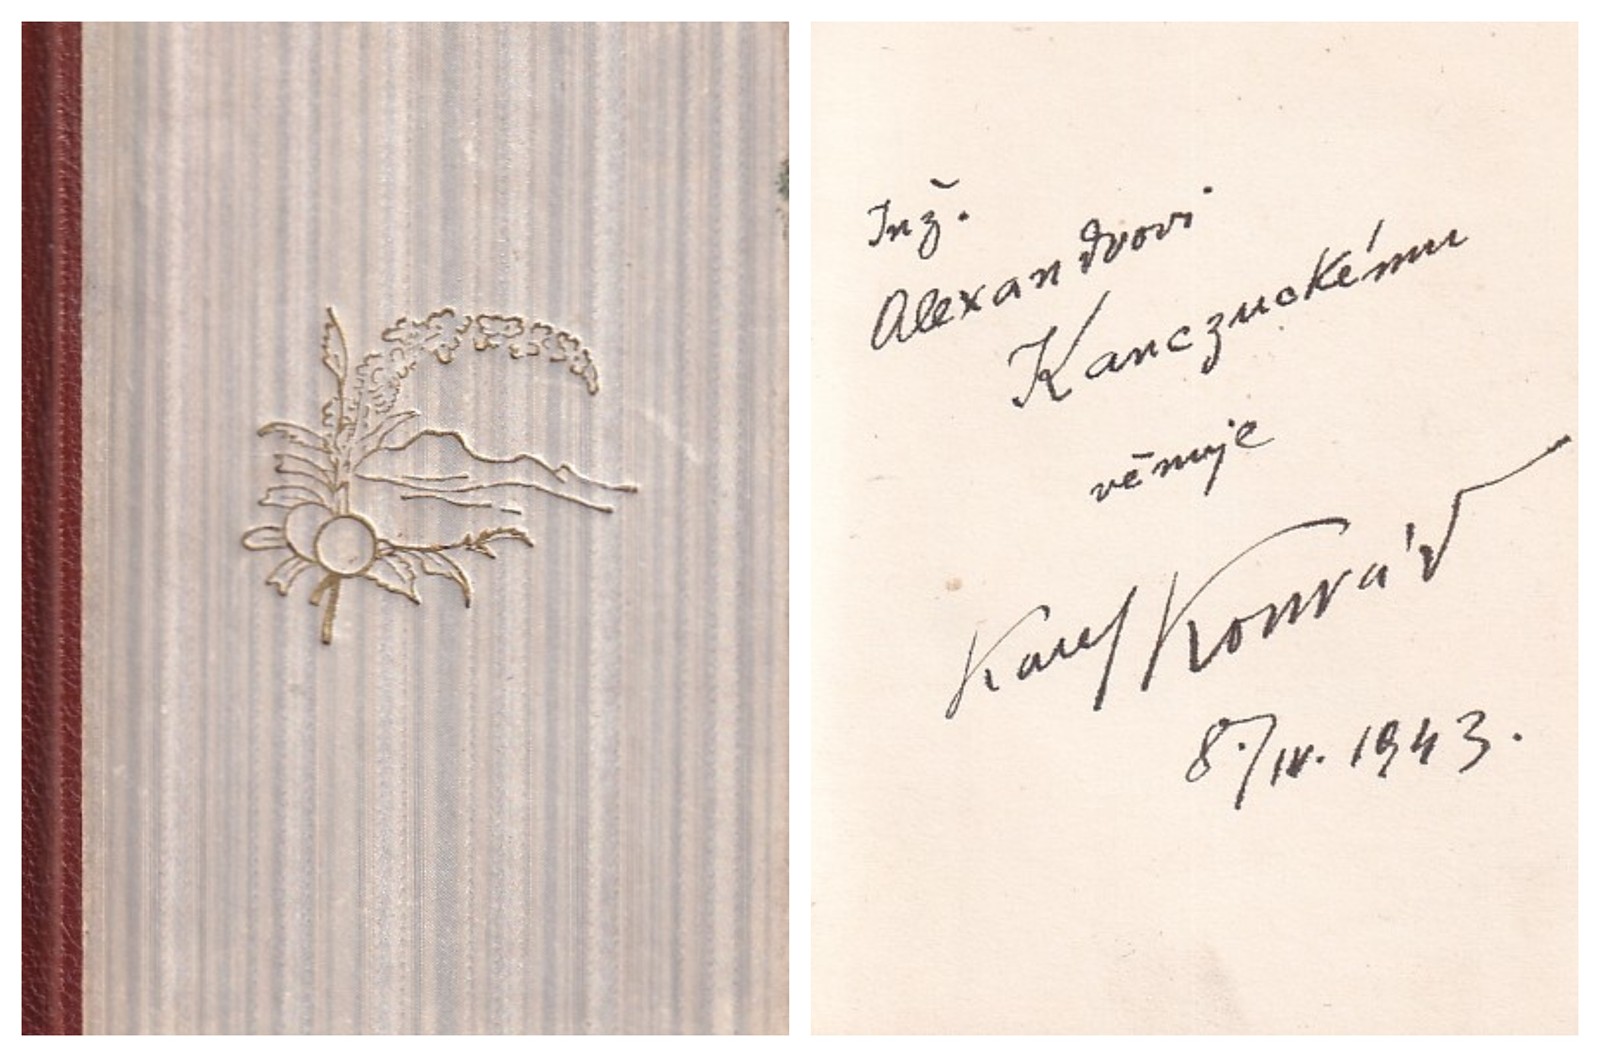 Inž.
Alexandrovi
Kanczuckému
věnuje
Karel Konrád
8./IV. 1943.